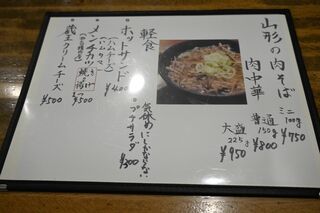 山形の肉そば
肉中華
ミニ 100g ¥750
普通 150g ¥800
大盛 225g ¥950
軽食
気休めにしかならない
プチサラダ ¥300
ホットサンド ¥400
(ハムチーズ)
メンチカツ 焼き 揚げ ¥500
蔵王クリームチーズ ¥500